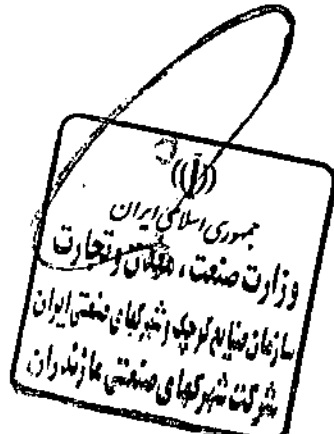 جمهوری اسلامی ایران
وزارت صنعت، معدن و تجارت
سازمان صنایع کوچک و شهرکهای صنعتی ایران
شرکت شهرکهای صنعتی مازندران